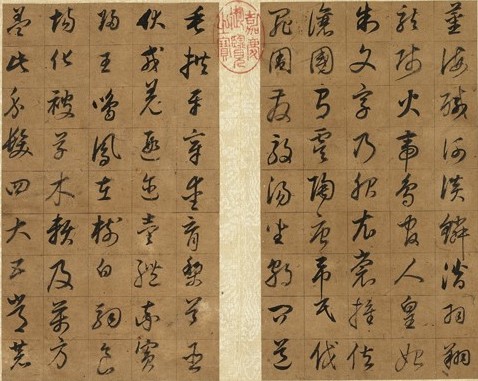 薑海鹹河淡鱗潛羽翔
龍師火帝鳥官人皇始
制文字乃服衣裳推位
讓國有虞陶唐弔民伐
罪周發殷湯坐朝問道
嘉慶御覽之寶
垂拱平章愛育黎首臣
伏戎羌遐迩壹體率賓
歸王鳴鳳在樹白駒食
場化被草木賴及萬方
蓋此身髮四大五常恭